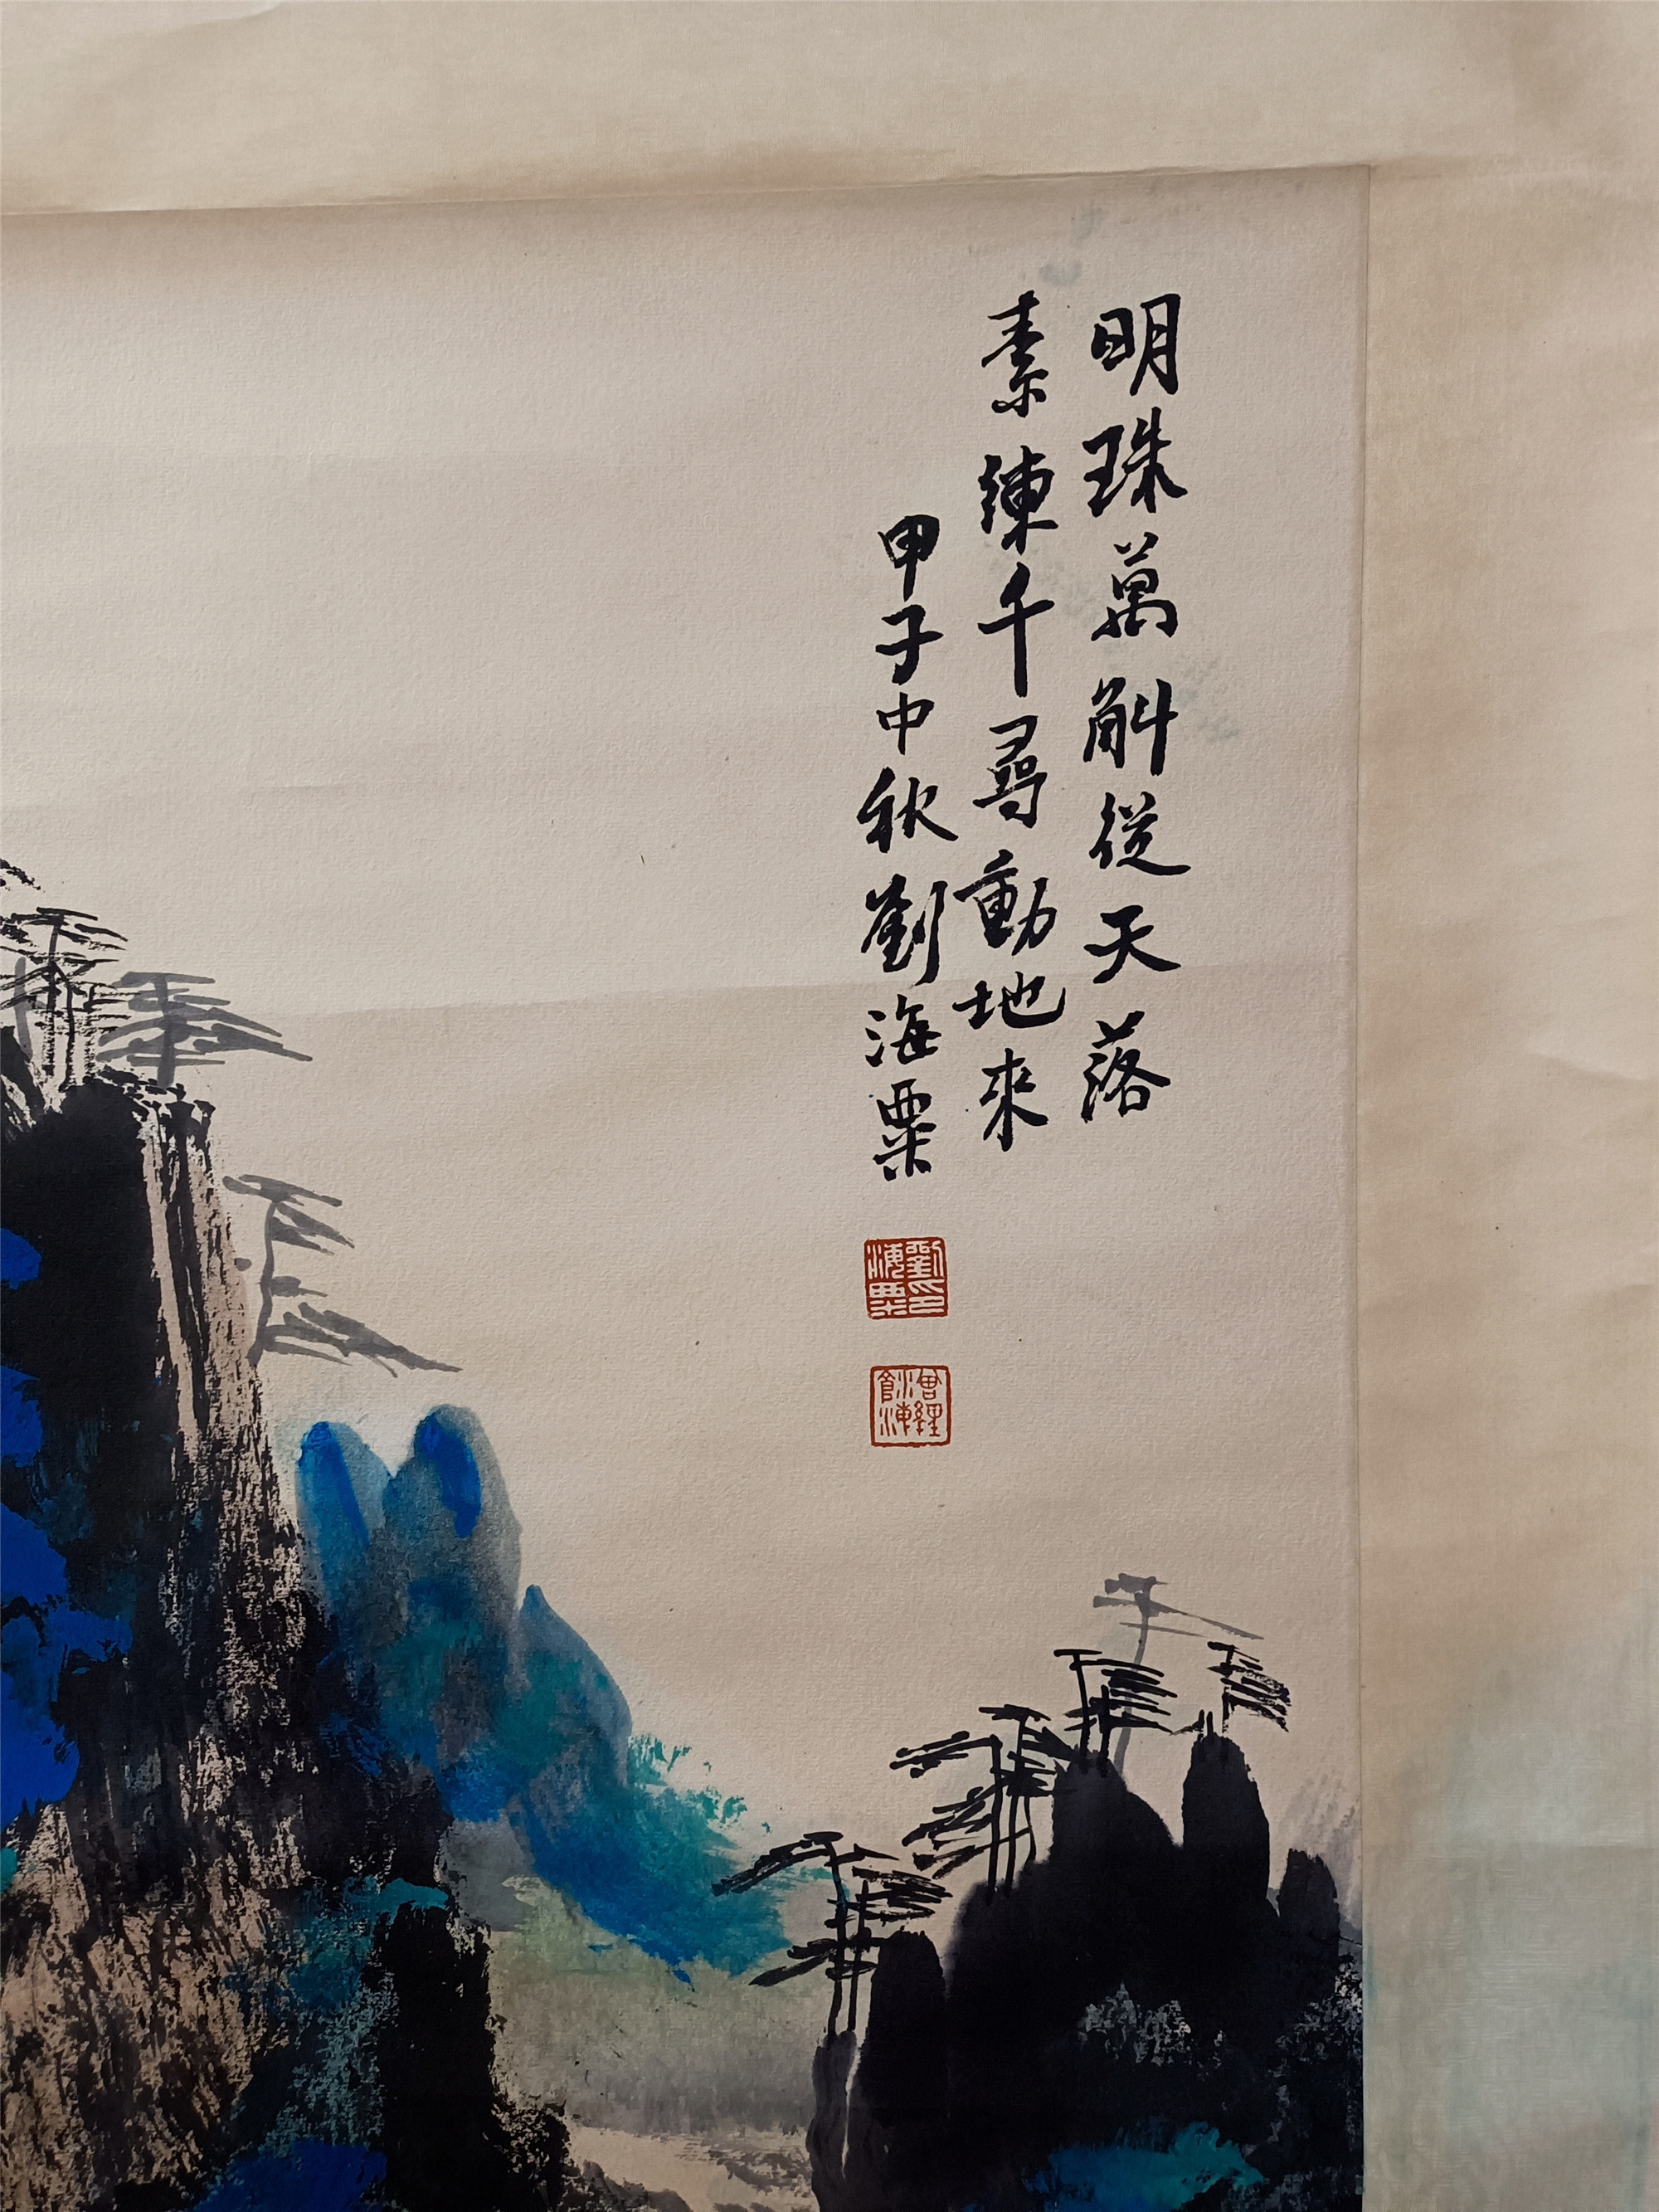 明珠萬斛從天落
素練千尋動地來
甲子中秋劉海粟
劉印海粟
曾經滄海